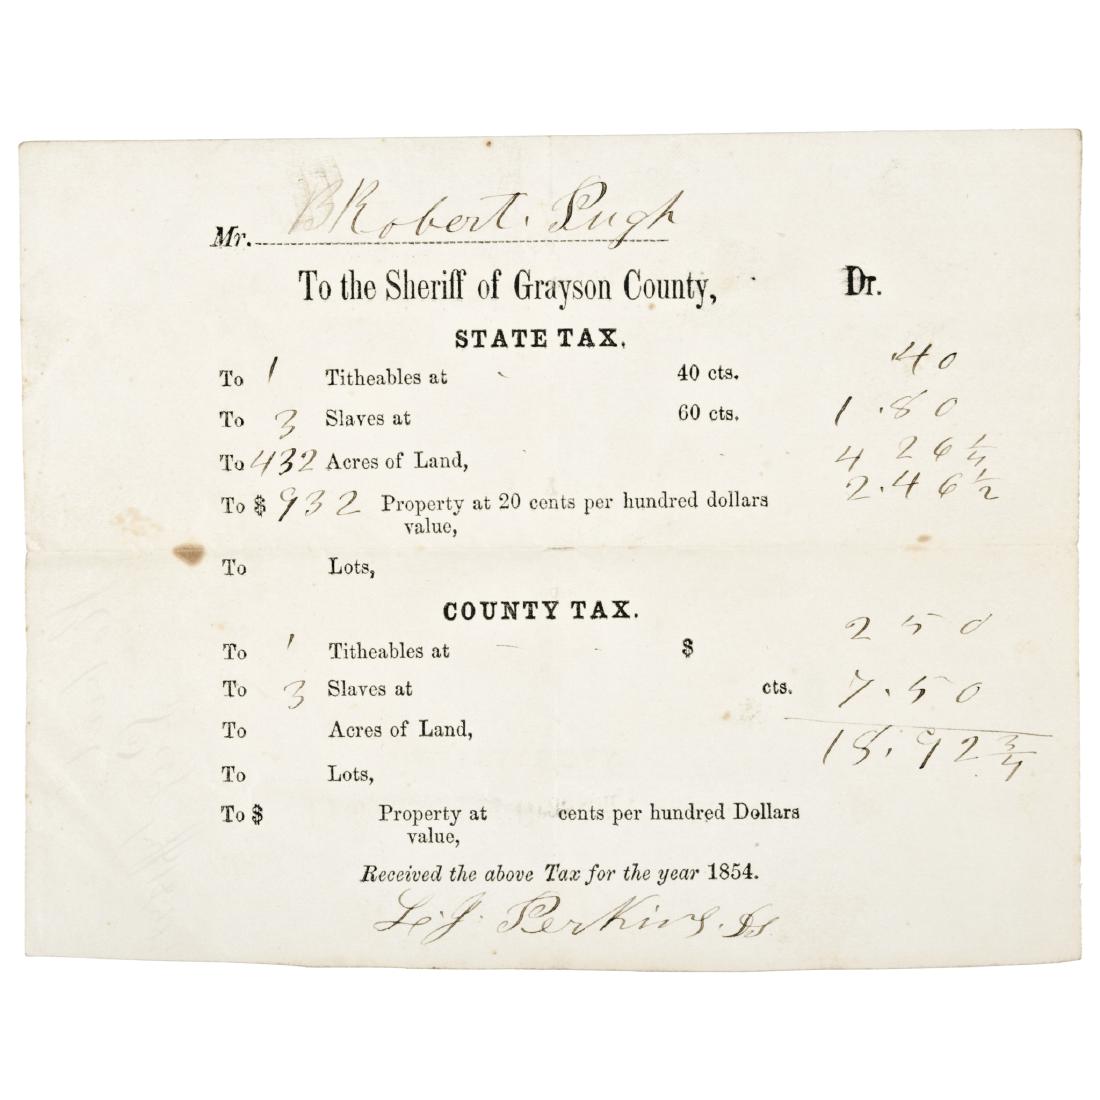 Mr. B Robert. Pugh
To the Sheriff of Grayson County, Dr.
STATE TAX.
To 1 Titheables at 40 cts. .40
To 3 Slaves at 60 cts. 1.80
To 432 Acres of Land, 4 26 1/4
To $ 932 Property at 20 cents per hundred dollars 2.46 1/2
value,
To Lots,
COUNTY TAX.
To 1 Titheables at $ 2 50
To 3 Slaves at cts. 7.50
To Acres of Land, 18.92 3/4
To Lots,
To $ Property at cents per hundred Dollars
value,
Received the above Tax for the year 1854.
L. J. Perkins. Ds